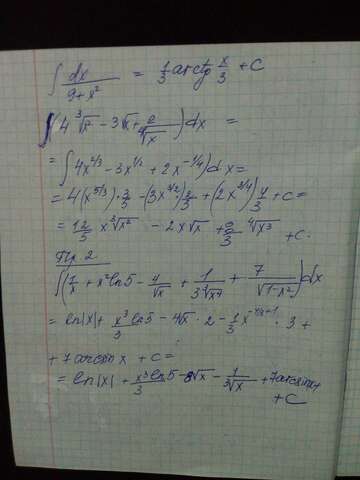 ∫ dx/(9+x²) = 1/3 arctg x/3 + C
∫(4 ∛x² - 3√x + 2/∜x)dx =
= ∫4x^(2/3) - 3x^(1/2) + 2x^(-1/4))dx =
= 4(x^(5/3))·3/5 - (3x^(3/2))2/3 + (2x^(3/4))4/3 + C =
= 12/5 x∛x² - 2x√x + 8/3 ∜x³ + C.
Пр. 2.
∫(1/x + x² ln5 - 4/√x + 1/(3∛x⁴) + 7/√(1-x²))dx
= ln|x| + x³/3 ln5 - 4√x · 2 - 1/3 x^(-4/3+1) · 3 +
+ 7arcsinx + C =
= ln|x| + x³ln5/3 - 8√x - 1/∛x + 7arcsinx +
+ C